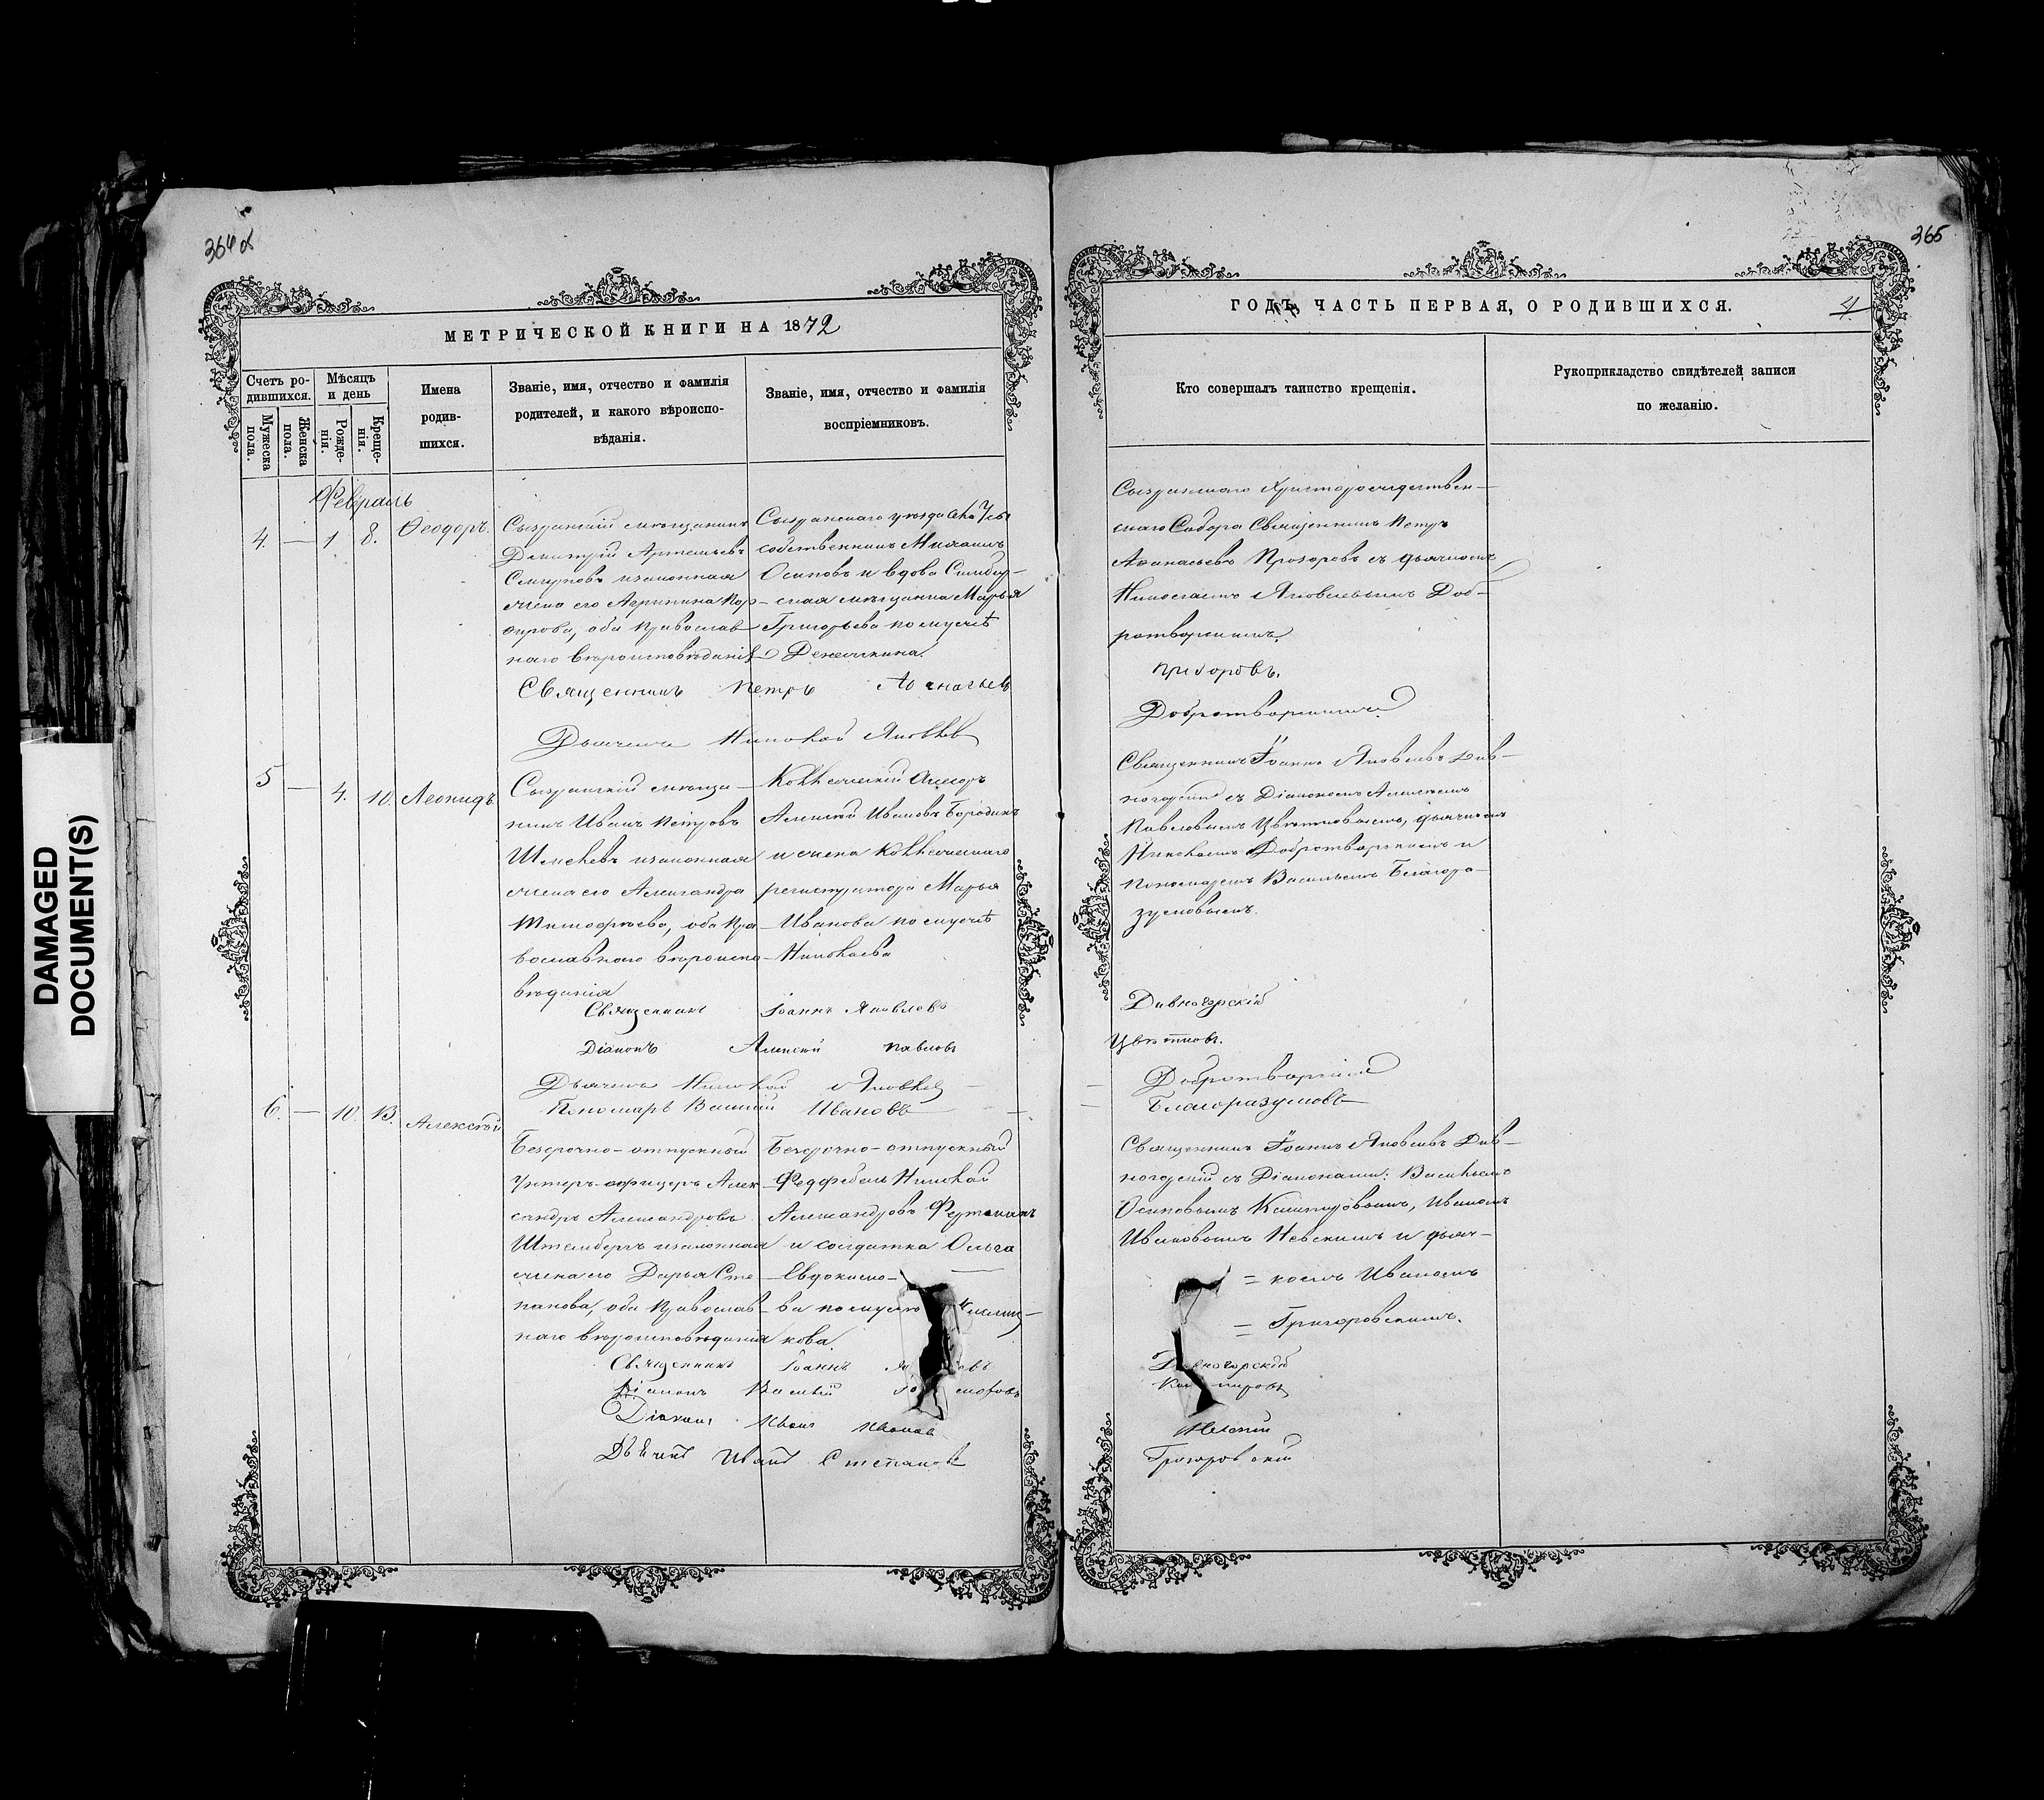 DAMAGED
DOCUMENT(S)
364 об
МЕТРИЧЕСКОЙ КНИГИ НА 1872
Счетъ ро-
дившихся.
Мужеска
пола.
Женска
пола.
Мѣсяцъ
и день
Рожде-
нія.
Креще-
нія.
Имена
родив-
шихся.
Званіе, имя, отчество и фамилія
родителей, и какого вѣроиспо-
вѣданія.
Званіе, имя, отчество и фамилія
воспріемниковъ.
Февраль
4. — 1. 8. Ѳеодоръ.
Сызранскій мѣщанинъ
Дмитрій Артемьевъ
и законная
жена его Агрипина Пор-
фирова, оба Православ-
наго вѣроисповѣданія
Сызранскаго уѣзда села
собственникъ Михаилъ
Осиповъ и вдова Симбир-
ская мѣщанка Марья
Григорьева по мужѣ
Денежкина.
Священникъ Петръ Аѳанасьевъ
Дьячекъ Николай Яковлев
5 — 4. 10. Леонидъ.
Сызранскій мѣща-
нинъ Иванъ Петровъ
и законная
жена его Александра
Тимофѣева, оба Пра-
вославнаго вѣроиспо-
вѣданія
Коллежскій
Алексѣй Ивановъ Бородинъ
и жена Коллежскаго
регистратора Марья
Иванова по мужѣ
Николаева
Священникъ Іоаннъ Яковлевъ
Діаконъ Алексѣй Павловъ
Дьячекъ Николай Яковлев
Пономарь Василій Ивановъ
6. — 10. 13. Алексѣй
Безсрочно-отпускный
Унтеръ-офицеръ Алек-
сандръ Александровъ
Штемберъ и законная
жена его Дарья Сте-
панова, оба Православ-
наго вѣроисповѣданія
Безсрочно-отпускный
Фельдфебель Николай
Александровъ
и солдатка Ольга
Евдокимо-
ва по мужу
кова.
Священникъ Іоаннъ
Діаконъ Василій
Діаконъ Иванъ Ивановъ
Дьячекъ Иванъ Степановъ
365
ГОДЪ, ЧАСТЬ ПЕРВАЯ, О РОДИВШИХСЯ.
4.
Кто совершалъ таинство крещенія.
Рукоприкладство свидѣтелей записи
по желанію.
Сызранскаго Христорождествен-
скаго Собора Священникъ Петръ
Аѳанасьевъ Прозоровъ съ дьячкомъ
Николаемъ Яковлевымъ Доб-
ротворскимъ.
Прозоровъ.
Добротворскій
Священникъ Іоаннъ Яковлевъ Див-
ногорскій съ Діакономъ Алексѣемъ
Павловымъ Цвѣтковымъ, дьячкомъ
Николаемъ Добротворскимъ и
Пономаремъ Василіемъ Благора-
зумовымъ.
Дивногорскій
Цвѣтковъ.
Добротворскій
Благоразумовъ
Священникъ Іоаннъ Яковлевъ Див-
ногорскій съ Діаконами: Василіемъ
Осиповымъ Кашировымъ, Иваномъ
Ивановымъ Невскимъ и дьяч-
= комъ Иваномъ
= Григоровскимъ.
Дивногорскій
Невскій
Григоровскій